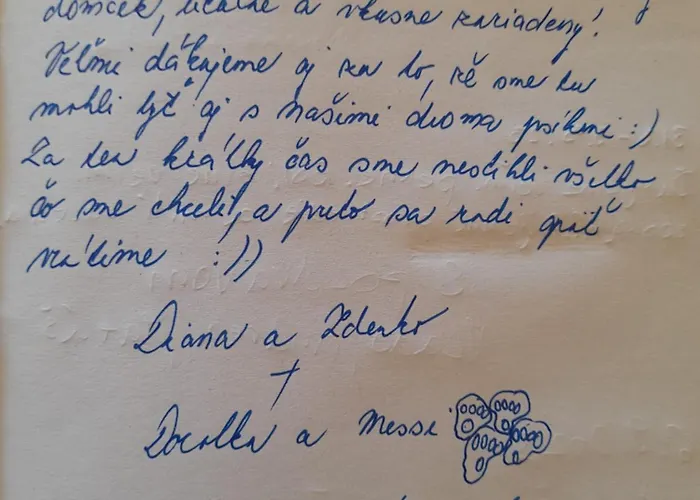 domček, útulne a vkusne zariadený!
Veľmi ďakujeme aj za to, že sme tu
mohli byť aj s našimi dvoma psíkmi :)
Za ten krátky čas sme nestihli všetko
čo sme chceli, a preto sa radi opäť
vrátime :))
Diana a Zdenko
+
a Messi